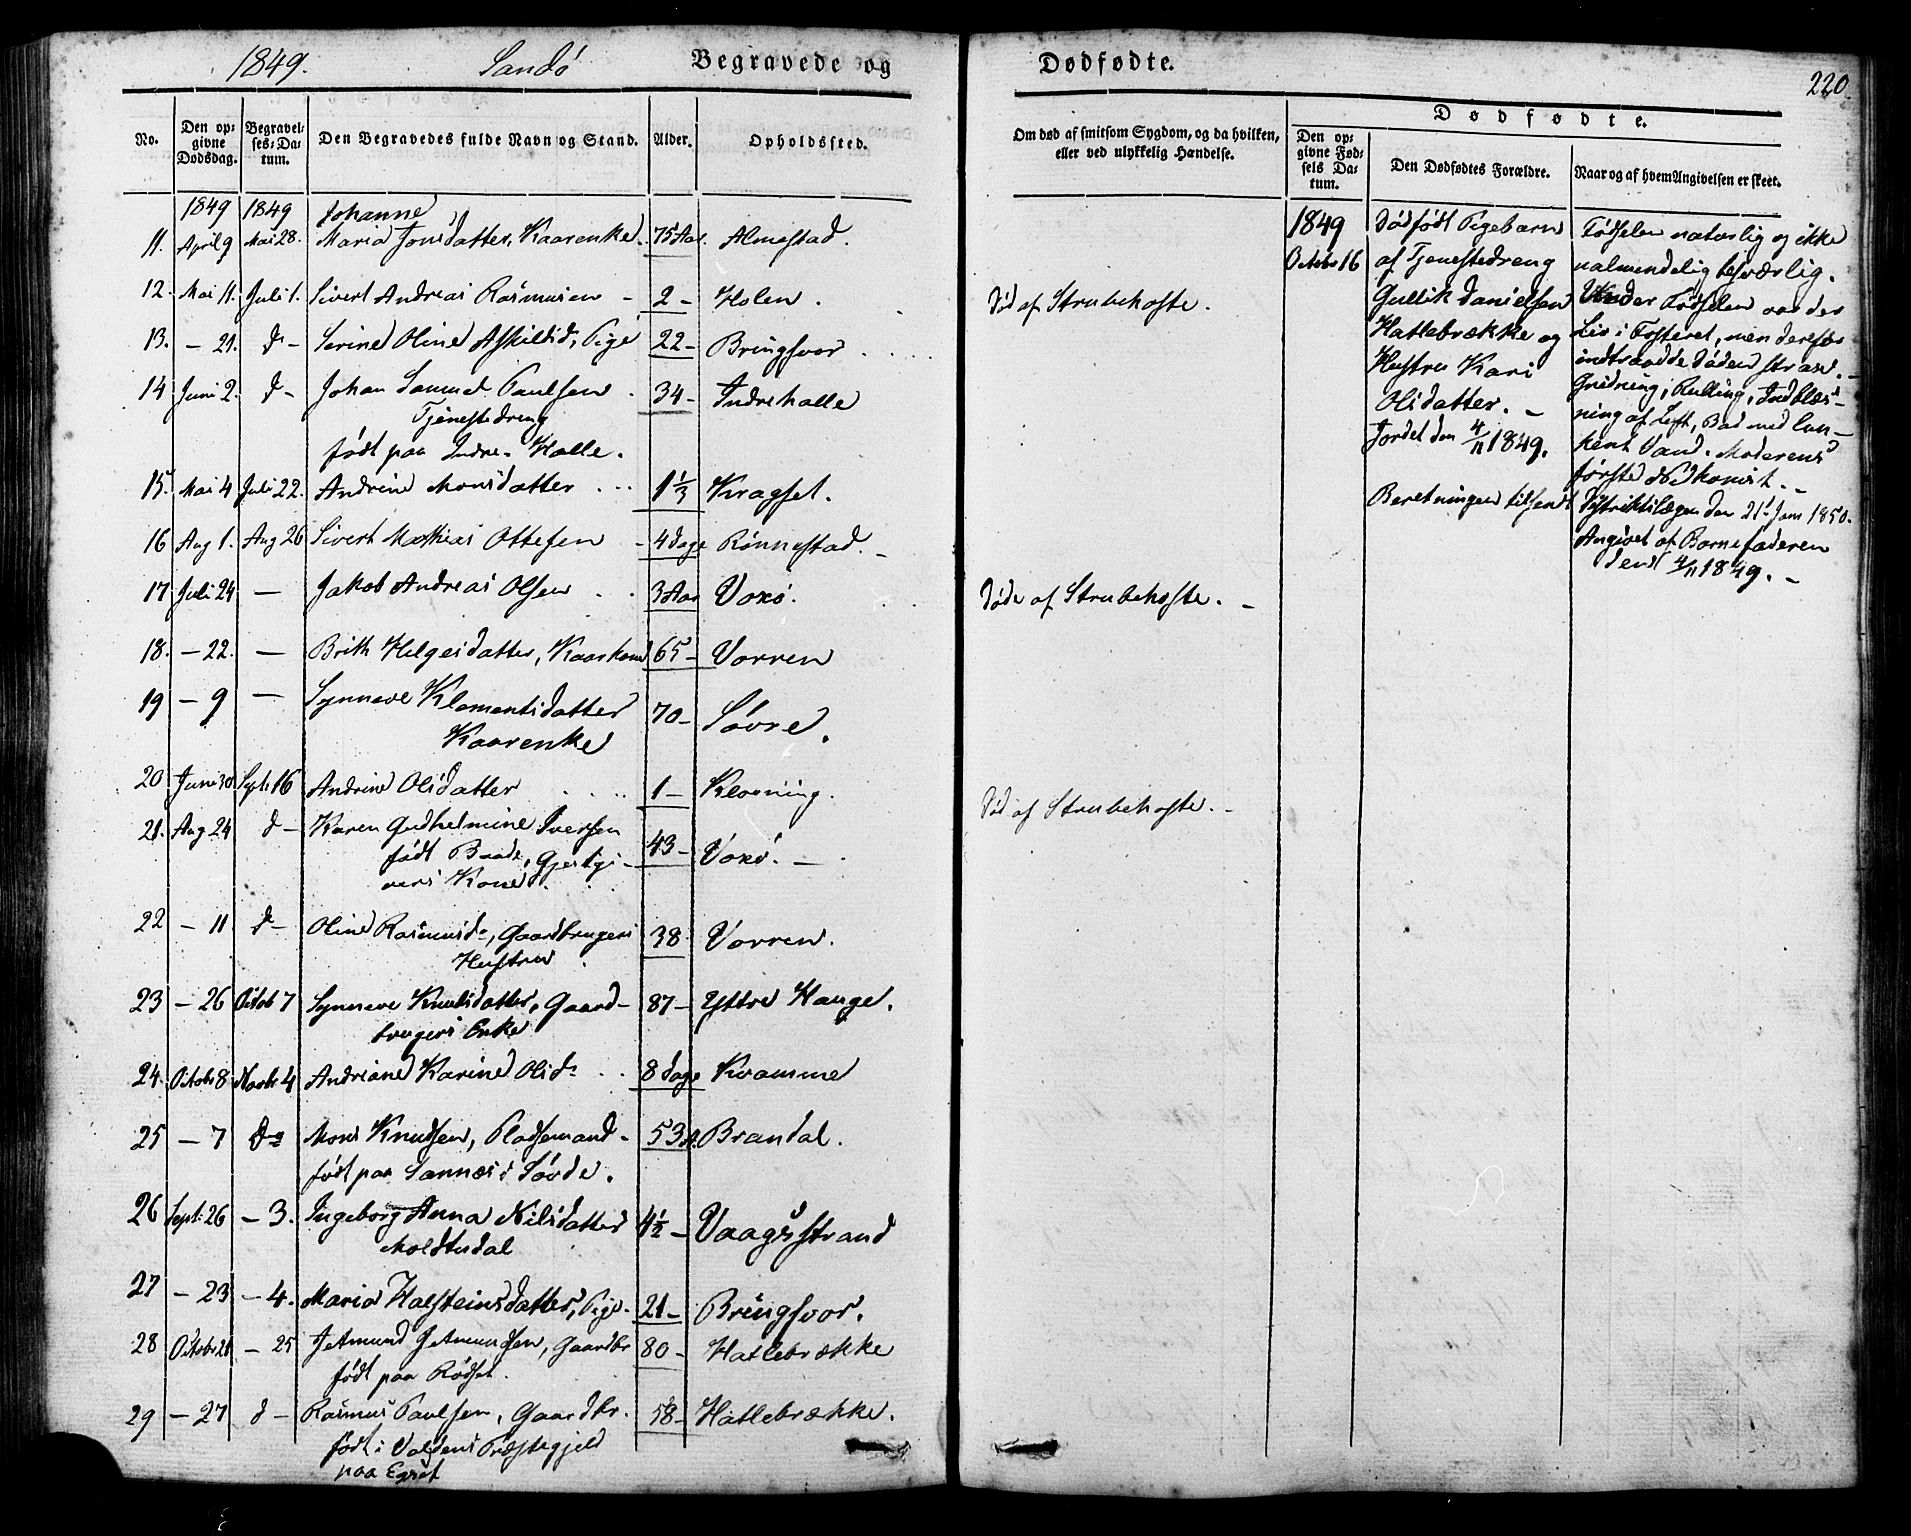 1849. Sandø Begravede og Dødfødte. 220.
No. | Den opgivne Dødsdag. | Begravelses-Datum. | Den Begravedes fulde Navn og Stand. | Alder. | Opholdssted.
1849 1849 Johanne
11. April 9 Mai 28. Maria Jonsdatter, Kaarenke. 75 Aar. Almestad.
12. Mai 11. Juli 1. Sivert Andreas Rasmusen - 2 - Holen.
13. - 21. d- Serine Oline Askilsd, Pige 22 - Bringsvor
14 Juni 2. d- Johan Samuel Paulsen 34 - Indrehalle
Tjenestedreng
født paa Indre-Halle.
15. Mai 4 Juli 22. Andrine Monsdatter 1 1/3 Kragset.
16 Aug 1. Aug 26 Sivert Mathias Ottesen - 4 dage Rønnestad. -
17 Juli 24 - Jakob Andreas Olsen 3 Aar Voxø.
18. - 22. - Brith Helgesdatter, Kaarkone 65 - Vorren
19 - 9 - Synneve Klementsdatter 70 - Søvre.
Kaarenke
20 Juni 30. Sept. 16 Andrine Olsdatter 1 - Klovning.
21. Aug 24 d- Karen Gudhelmine Iversen 43 - Voxø. -
født Baade, Gjestgi-
veris Kone.
22 - 11 d- Oline Rasmusd., Gaardbrugeri 38 Vorren.
Hustru
23 - 26 Octob 7 Synneve Knutsdatter, Gaard- 87 - Yttre Hauge.
brugeri Enke
24. Octobr 8 Novbr 4 Andriane Karine Olsd. 8 dage Kvamme
25 - 7 do Mons Knudsen, Pladsemand - 53 A. Brandal.
født paa Sannæs i Søvde.
26 Sept. 26 - 3. Ingeborg Anna Nilsdatter 4 1/2 - Vaagsstrand
Moldtudal
27 - 23 - 4. Maria Halsteinsdatter, Pige. 21 - Bringsvor.
28 Octobr 21 - 25 Jetmund Jetmundsen, Gaardbr 80 - Hatlebrække
født paa Rødset.
29 - 27 d- Rasmus Paulsen, Gaardbr. 58 - Hatlebrække.
født i Voldens Præstegjeld
paa Egset
Om død af smitsom Sygdom, og da hvilken, eller ved ulykkelig Hændelse.
Død af Strubehoste.
Døde af Strubehoste. -
Død af Strubehoste. -
Dødfødte.
Den opgivne Fødsels Datum. | Den Dødfødtes Forældre. | Naar og af hvem Angivelsen er skeet.
1849
Octobr 16
Dødfødt Pigebarn
af Tjenestedreng
Gullik Danielsen
Hatlebrække og
Hustru Kari
Olsdatter. -
Jordet den 4/11 1849.
Beretningen tilsendt
Fødselen naturlig og ikke
ualmindelig besværlig.
Under Fødselen var der
Liv i Fosteret, men derefter
indtraadde Døden strax. -
Gnidning, Rulling, Indblæs-
ning af Luft, Bad med lun-
kent Vand. Moderens
første Nedkomst. -
Distriktslægen den 21d Jan 1850.
Angivet af Barnefaderen
den 4/11 1849. -